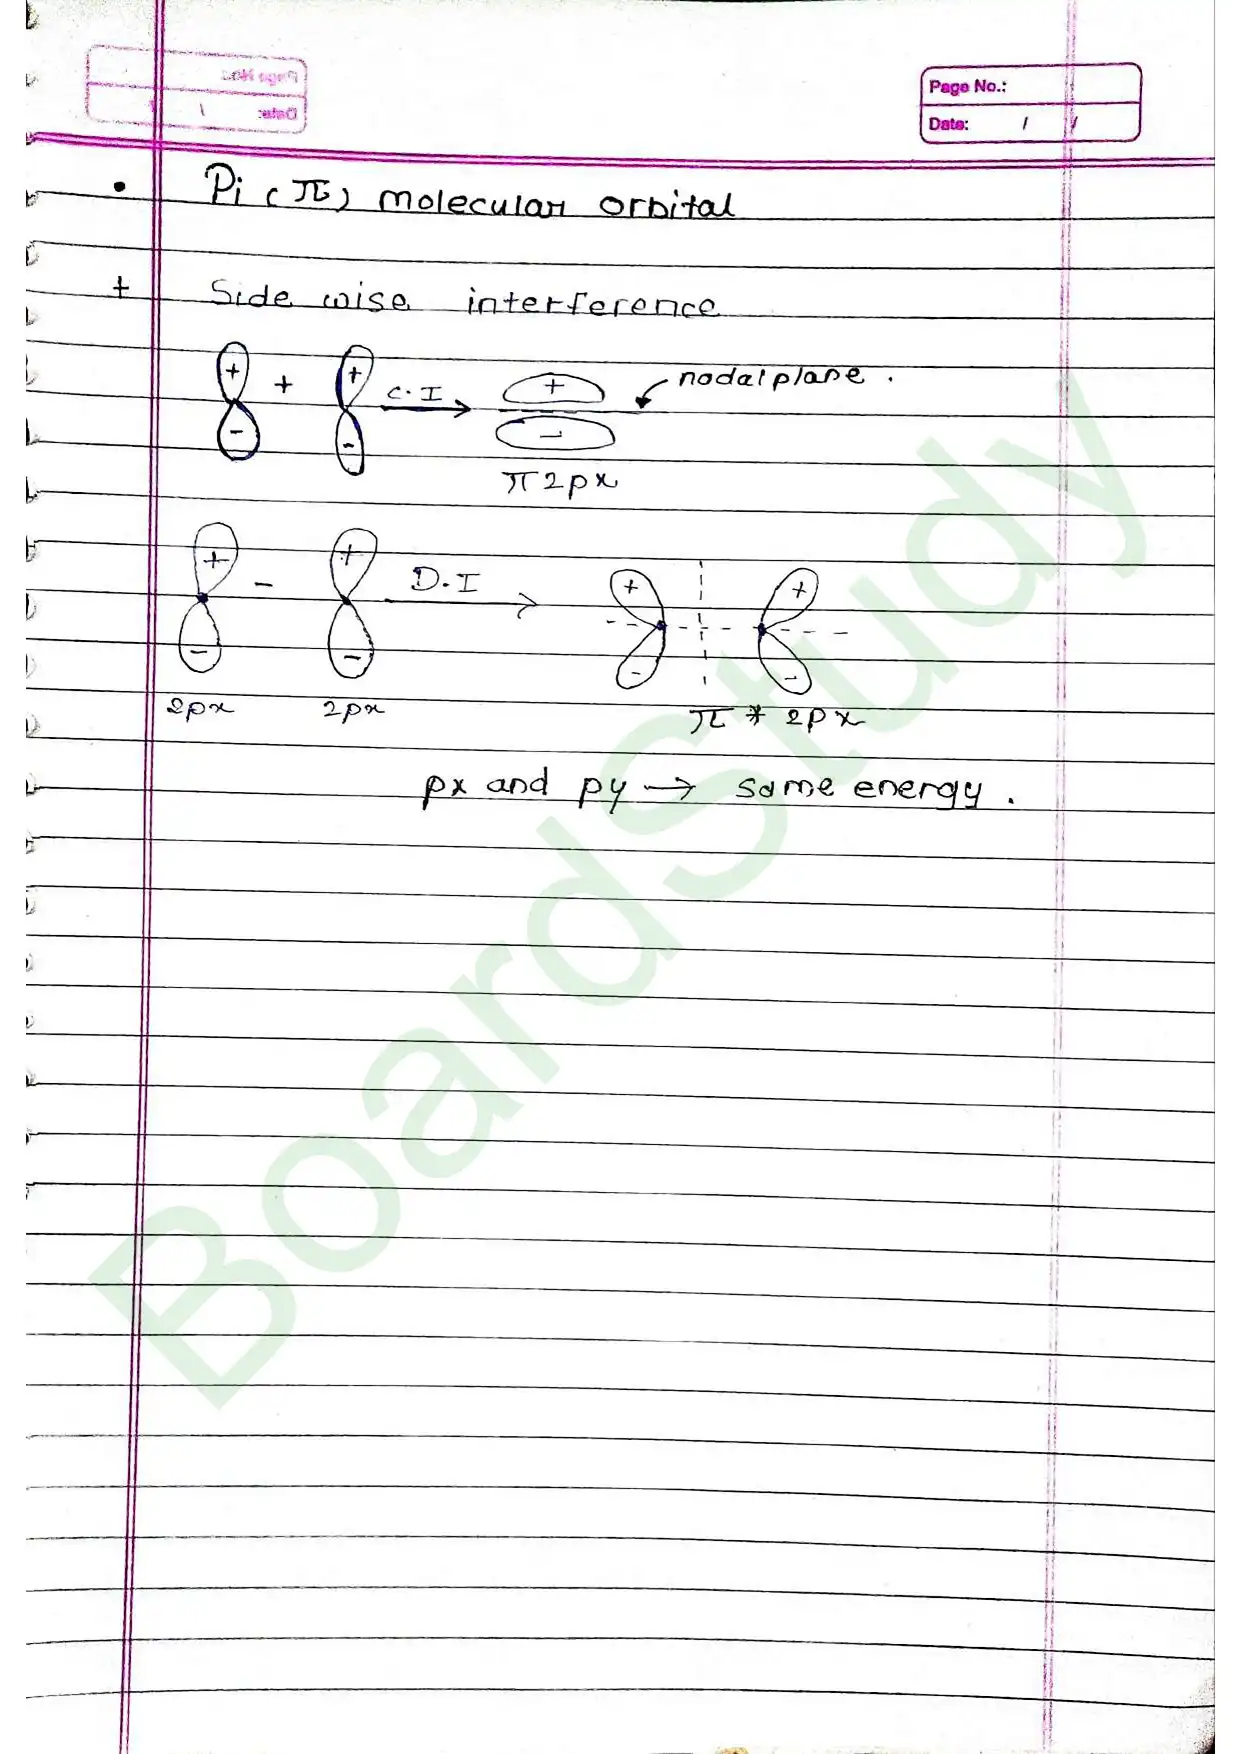 Page No.:
Date: / /
Page No.:
Date: /
• Pi (π) molecular orbital
+ Side wise interference
+ + + C.I → + nodal plane.
- - -
π 2px
+ - + D.I → + +
- - - -
2px 2px π * 2px
px and py → same energy.
BoardStudy